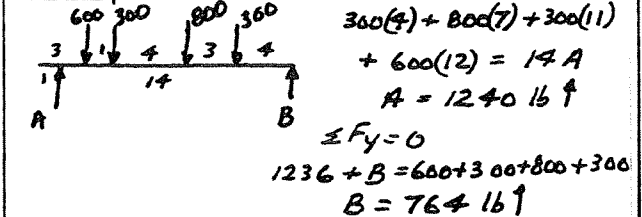 600 300 800 300
3 1 4 3 4
1 14
A B
300(4) + 800(7) + 300(11)
+ 600(12) = 14 A
A = 1240 lb ↑
ΣFy = 0
1236 + B = 600 + 300 + 800 + 300
B = 764 lb ↑